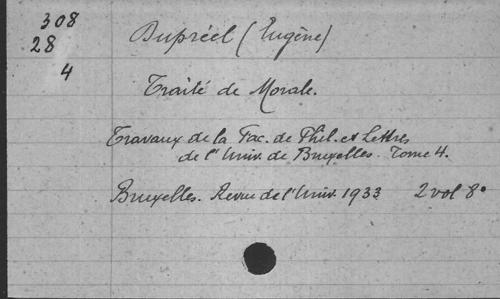 308
28
4
Dupréel (Eugène)
Traité de Morale.
Travaux de la Fac. de Phil. et Lettres
de l'Univ. de Bruxelles. Tome 4.
Bruxelles. Revue de l'Univ. 1933 2 vol 8°